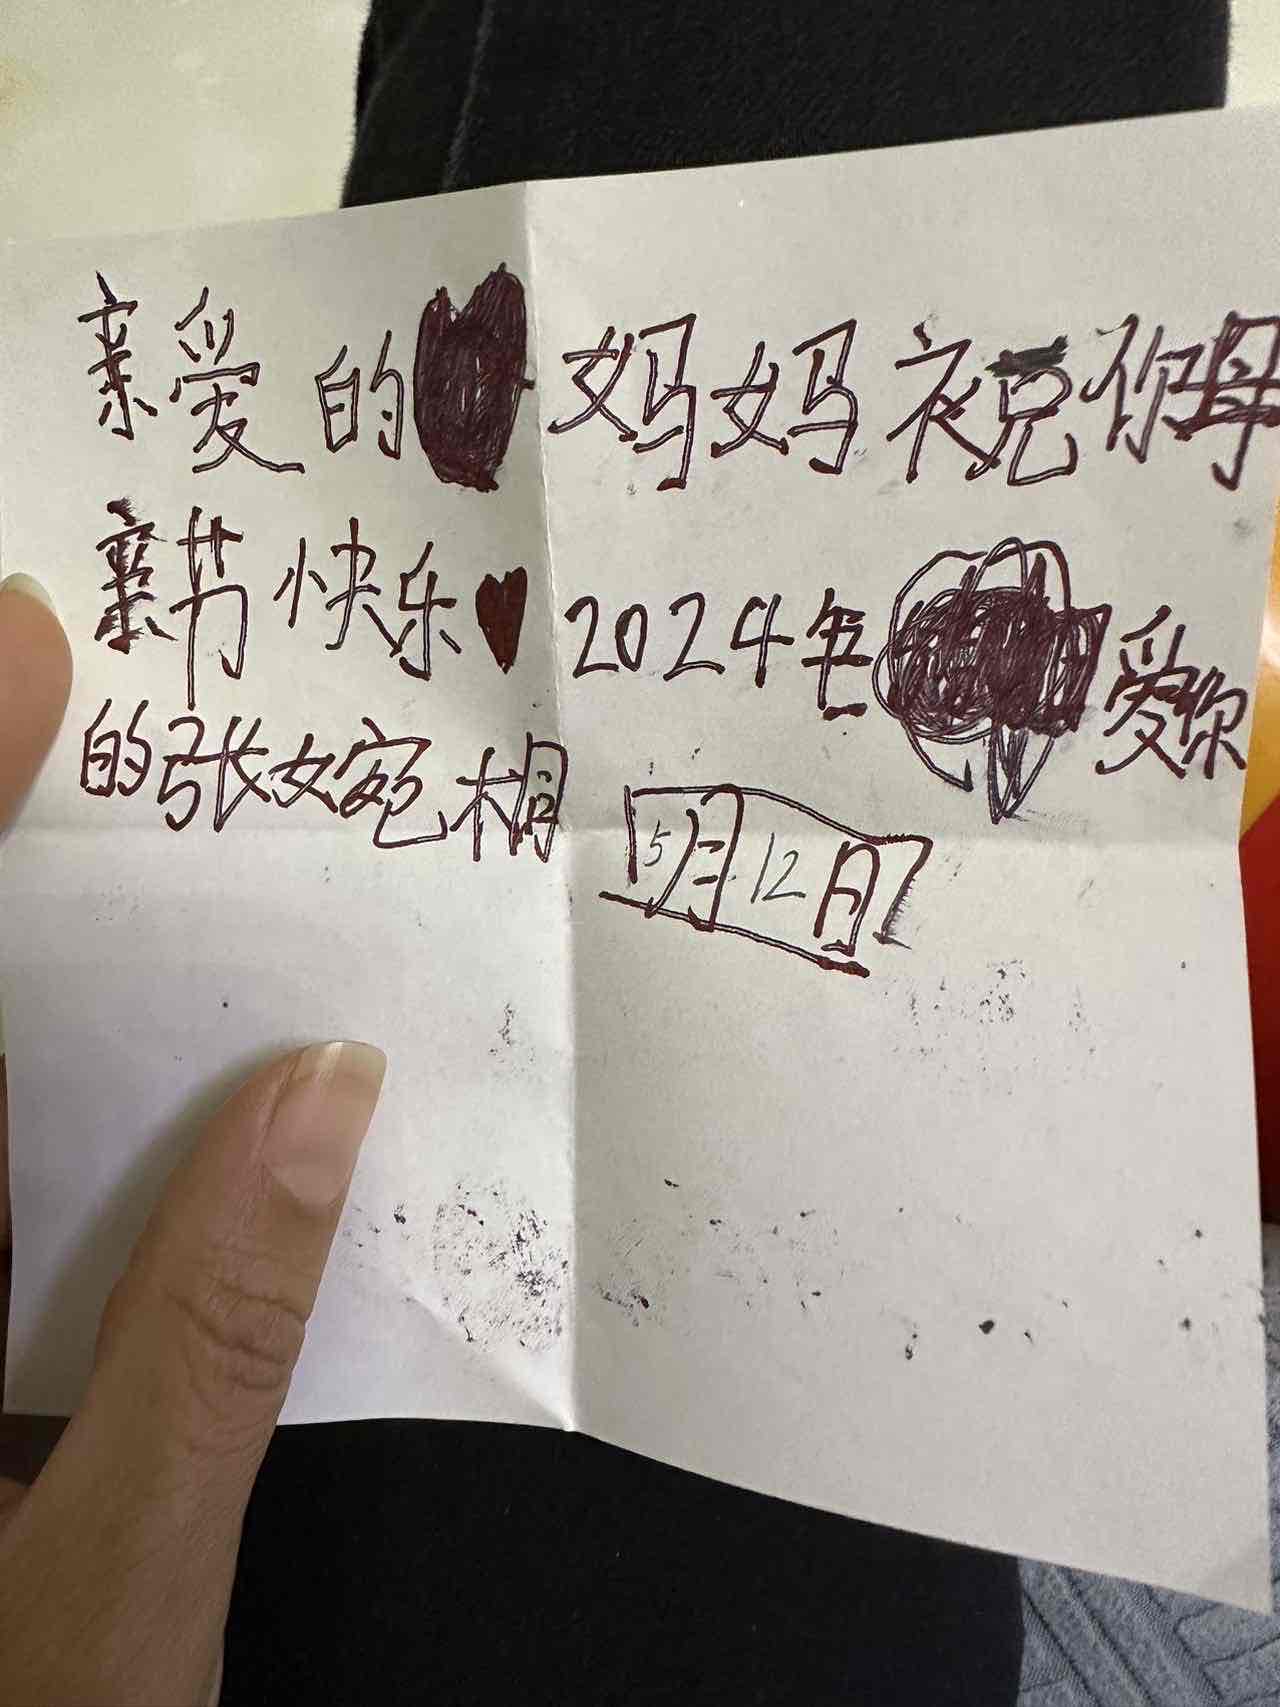 亲爱的妈妈祝你母
亲节快乐♥2024年爱你
的张婉桐
5月12日